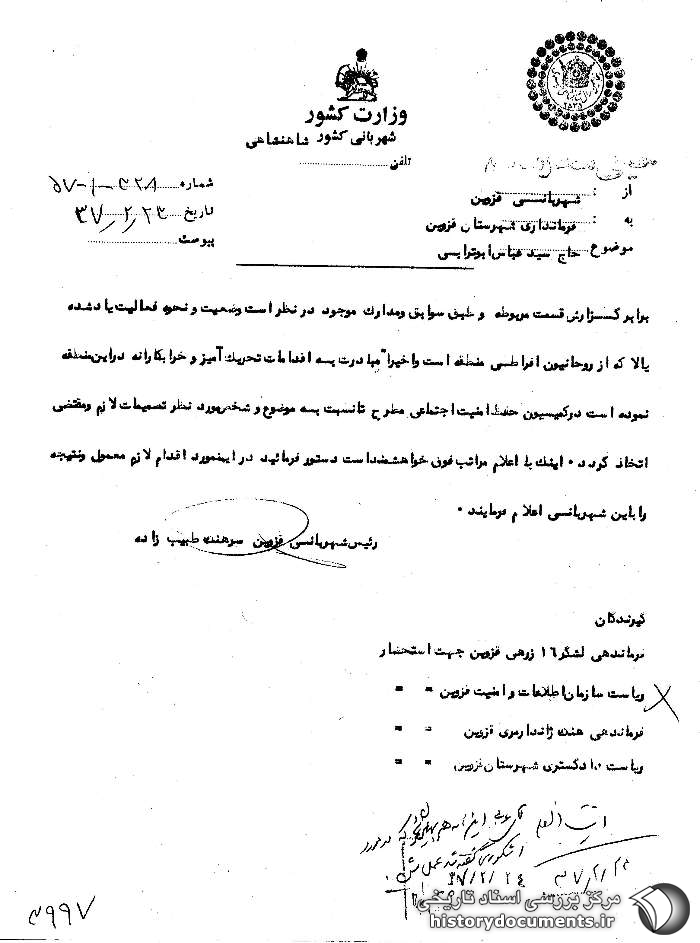 وزارت کشور
شهربانی کشور شاهنشاهی
تلفن
شماره ۵۷-۱-۴۲۸
از : شهربانی قزوین
تاریخ ۳۷/۲/۲۳
به : فرمانداری شهرستان قزوین
پیوست
موضوع حاج سید عباس ابوترابی
برابر گزارش قسمت مربوطه و طبق سوابق ومدارک موجود در نظر است وضعیت و نحوه فعالیت یاد شده
بالا که از روحانیون افراطی منطقه است واخیراً مبادرت به اقدامات تحریک آمیز و خرابکارانه دراین منطقه
نموده است درکمیسیون حفظ امنیت اجتماعی مطرح تا نسبت به موضوع و شخص مورد نظر تصمیمات لازم ومقتضی
اتخاذ گردد . اینک با اعلام مراتب فوق خواهشمند است دستور فرمائید در اینمورد اقدام لازم معمول ونتیجه
را باین شهربانی اعلام فرمایند .
رئیس شهربانی قزوین سرهنگ طبیب زاده
گیرندگان
فرماندهی لشگر ۱۶ زرهی قزوین جهت استحضار
ریاست سازمان اطلاعات و امنیت قزوین " "
فرماندهی هنگ ژاندارمری قزوین " "
ریاست دادگستری شهرستان قزوین " "
۳۷/۲/۲۳
۳۷/۲/۲۴
۳۹۹۷
مرکز بررسی اسناد تاریخی
historydocuments.ir